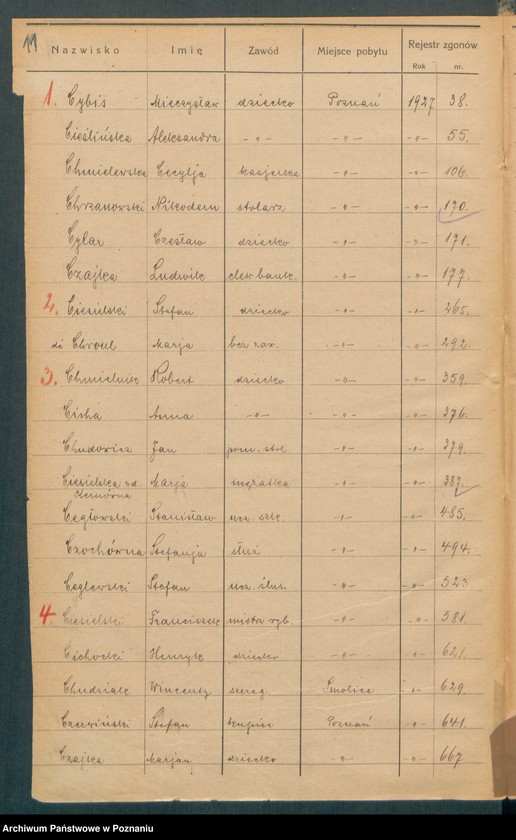 11
Nazwisko Imię Zawód Miejsce pobytu Rejestr zgonów
Rok nr.
1. Cybis Mieczysław dziecko Poznań 1927 38.
Cieślińska Aleksandra -"- -"- -"- 55.
Chmielewska Cecylja kasjerka -"- -"- 106.
Chrzanowski Nikodem stolarz -"- -"- 170.
Cylar Czesław dziecko -"- -"- 171.
Czajka Ludwik elew bank. -"- -"- 177.
2. Ciesielski Stefan dziecko -"- -"- 265.
de Chroul Marja bez zaw. -"- -"- 292.
3. Chmielnik Robert dziecko -"- -"- 359.
Cicha Anna -"- -"- -"- 376.
Chudowicz Jan pom. stol. -"- -"- 379.
Ciesielska Marja mężatka -"- -"- 387.
Cegłowski Stanisław ucz. szk. -"- -"- 485.
Czochówna Stefanja służ -"- -"- 494.
Ceglewski Stefan ucz. ślus. -"- -"- 523.
4. Ciesielski Franciszek mistrz ryb. -"- -"- 581.
Cichocki Henryk dziecko -"- -"- 621.
Chudziak Wincenty szereg. Smolice -"- 629.
Czerwiński Stefan kupiec Poznań -"- 641.
Czajka Marjan dziecko -"- -"- 667.
Archiwum Państwowe w Poznaniu